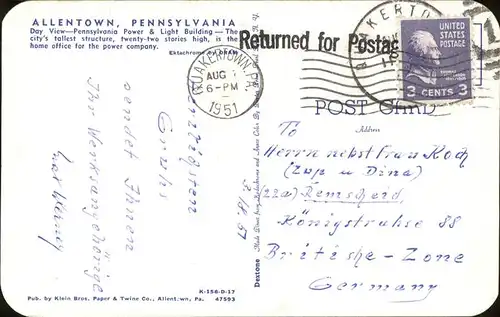 ALLENTOWN, PENNSYLVANIA
Day View—Pennsylvania Power & Light Building — The
city's tallest structure, twenty-two stories high, is the
home office for the power company.
Ektachrome by
Returned for Postage
QUAKERTOWN, PA.
AUG
6-PM
1951
UNITED
STATES
POSTAGE
3 CENTS 3
POST CARD
Address
To
Herrn nebst Frau Koch
(Zup u Dina)
(22a) Remscheid,
Königstrahse 88
Britishe-Zone
Germany
Grühs
sendet Ihnen
Ihr Werksangehörige
K-156-D-17
Pub. by Klein Bros. Paper & Twine Co., Allentown, Pa. 47593